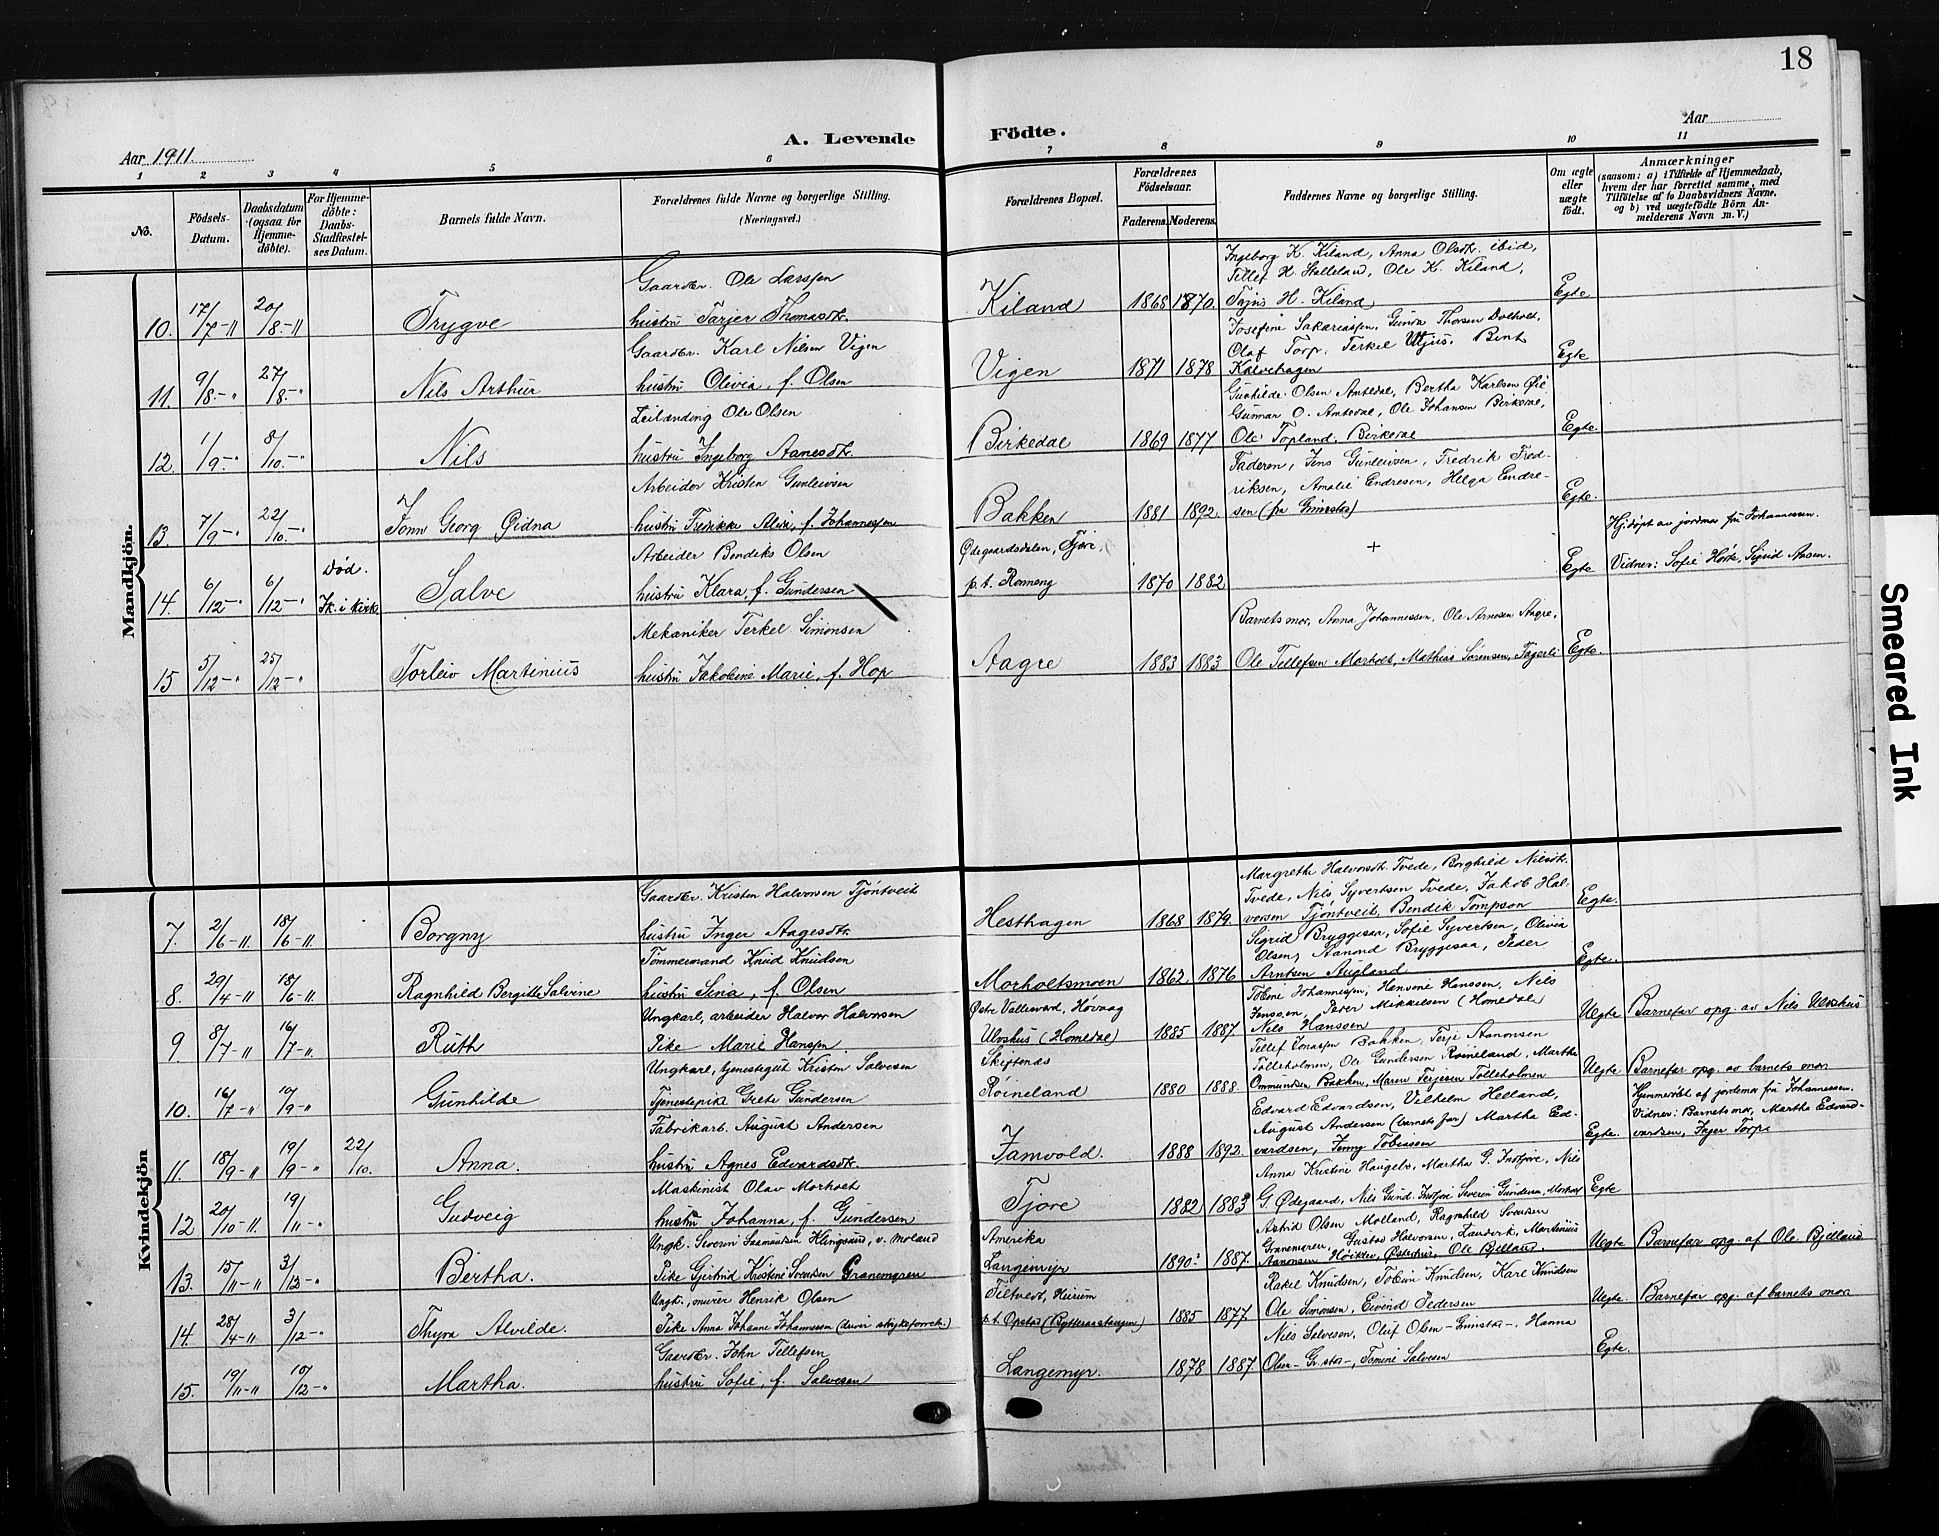 18
Aar 1911
A. Levende Födte.
Aar
1 2 3 4 5 6 7 8 9 10 11
No.
Födsels-Datum.
Daabsdatum (ogsaa for Hjemme-döbte).
For Hjemme-döbte: Daabs-Stadfæstel-ses Datum.
Barnets fulde Navn.
Forældrenes fulde Navne og borgerlige Stilling. (Næringsvei.)
Forældrenes Bopæl.
Forældrenes Födselsaar.
Faderens. Moderens.
Faddernes Navne og borgerlige Stilling.
Om ægte eller uægte födt.
Anmærkninger
(saasom: a) i Tilfælde af Hjemmedaab,
hvem der har forrettet samme, med
Tilföielse af to Daabsvidners Navne.
og b) ved uægtefödte Börn An-
melderens Navn m. V.)
Mandkjön.
10. 17/7-11 20/8-11 Trygve
Gaardbr. Ole Larssen
hustru Tarjer Thomasdtr.
Kiland 1868 1870.
Ingeborg K. Kiland, Anna Olsdtr. ibid,
Tellef H. Stalleland, Ole K. Kiland,
H. Kiland
Egte
11. 9/8-" 27/8-" Nils Arthur
Gaardbr. Karl Nilsen Vigen
hustru Olivia, f. Olsen
Vigen 1871 1878
Josefine Sakariassen, Gunda Thorsen Dolholt,
Olaf Torp, Terkel Bent
Kalvehagen
Egte
12. 1/9-" 8/10-" Nils
Leilænding Ole Olsen
hustru Ingeborg Aanesdtr.
Birkedal 1869 1877
Gunhilde Olsen Amtedal, Bertha Karlsen Øie
Gunnar O. Amtedal, Ole Johansen Birkedal,
Ole Topland, Birkedal
Egte.
13. 7/9-" 22/10-" John Georg Qidna
Arbeider Kristen Gunleivsen
hustru Fredrikke Alvi, f. Johannessen
Bakken 1881 1892.
Faderen, Jens Gunleivsen, Fredrik Fred-
riksen, Amalie Endresen, Helga Endre-
sen (fra Grimstad)
Egte.
14. 6/12-" 6/12-" Død. Ik. i kirke Salve
Arbeider Bendiks Olsen
hustru Klara, f. Gundersen
Ødegaardsdalen, Fjære,
p.t. Romeng 1870 1882
+
Egte
Hj.døpt av jordmor frk Johannessen.
Vidner: Sofie Hodne, Sigrid Aasen.
15 5/12-" 25/12-" Torleiv Martinius
Mekaniker Terkel Simonsen
hustru Jakobine Marie, f. Hop
Aagre 1883 1883
Barnets mor, Anna Johannessen, Ole Arnesen Aagre,
Ole Tellefsen Morholt, Mathias Sørensen, Fagerli
Egte.
Kvindekjön
7. 2/6-11. 18/6-11. Borgny
Gaardbr. Kristen Halvorsen Tjöntveit
hustru Inger Aagesdtr.
Hesthagen 1868 1879.
Margrethe Halvorsdt. Tvede, Borghild Nilsdtr.
Tvede, Nils Syvertsen Tvede, Jakob Hal-
vorsen Tjöntveit, Bendik Tompson
Egte.
8. 29/4-11 18/6-11. Ragnhild Bergitte Salvine
Tømmermand Knud Knudsen
hustru Sina, f. Olsen
Morholtsmoen 1862 1876
Sigrid Bryggesaa, Sofie Syvertsen, Olivia
Olsen, Aanond Bryggesaa, Peder
Arntsen Augland
Egte.
9. 8/7-11 16/7-11. Ruth
Ungkarl, arbeider Halvor Halvorsen
Pike Marie Hanssen
Østre Vallesverd, Høvaag
Ulvshus (Homedal) 1885 1887
Tobine Johannessen, Hansine Hanssen, Nils
Jenssen, Peder Mikkelsen (Homedal)
Nils Hanssen
Uegte
Barnefar opg. av Nils Ulvshus
10. 16/7-" 10/9-" Gunhilde
Ungkarl, tjenestegut Kristen Salvesen
Tjenestepike Grete Gundersen
Skiftenes
Röineland 1880 1888.
Tellef Jonassen Bakken, Terje Aanonsen
Tolleholmen, Ole Gundersen Roineland, Martha
Ommundsen Bakken, Maren Terjesen Tolleholmen
Uegte
Barnefar opg. av barnets mor.
11. 18/9-" 19/9-" 22/10. Anna.
Fabrikarb. August Andersen
hustru Agnes Edvardsdtr.
Jamvold. 1888 1892.
Edvard Edvardsen, Vilhelm Helland,
August Andersen (barnets far) Martha Ed-
vardsen, Jenny Tobiassen
Egte.
Hjemmedöbt af jordemor frk Johannessen.
Vidner: Barnets mor, Martha Edvard-
vardsen, Inger Torp.
12 20/10-11. 19/11-" Gudveig
Maskinist Olav Morholt
hustru Johanna, f. Gundersen
Tjore 1882 1883
Anna Kristine Haugeland, Martha G. Indtjore, Nils
G. Ødegaard, Nils Gund. Indtjore Severin Gundersen, Morholt
Egte
13. 15/11-" 3/12-" Bertha.
Ungk. Severin Saamundsen Klingsund, v. Moland
Pike Gjertrud Kristene Svendsen Granemyren
Amerika
Langemyr 1890? 1887.
Astrid Olsen Molland, Ragnhild Svendsen
Granemyren, Gustav Halvorsen, Landvik, Martinius
Aanonsen Østerhus, Ole Bjelland.
Uegte
Barnefar opg. af Ole Bjelland
14. 28/4-11 3/12-" Thyra Alvilde.
Ungk., murer Henrik Olsen
Pike Anna Johanne Johannessen (driver strykeforretn.)
Filtvedt, Hurum
p.t. Opstad 1885 1877
Rakel Knudsen, Tobine Knudsen, Karl Knudsen
Ole Simonsen, Eivind Pedersen
Uegte.
Barnefar opg. af barnets mor.
15. 19/11-11 10/12-" Martha.
Gaardbr. John Tellefsen
hustru Sofie, f. Salvesen
Langemyr. 1878 1887.
Nils Salvesen, Oluf Olsen - Grimstad -, Hanna
Olsen - Gr.stad -, Tomine Salvesen
Egte.
Smeared Ink